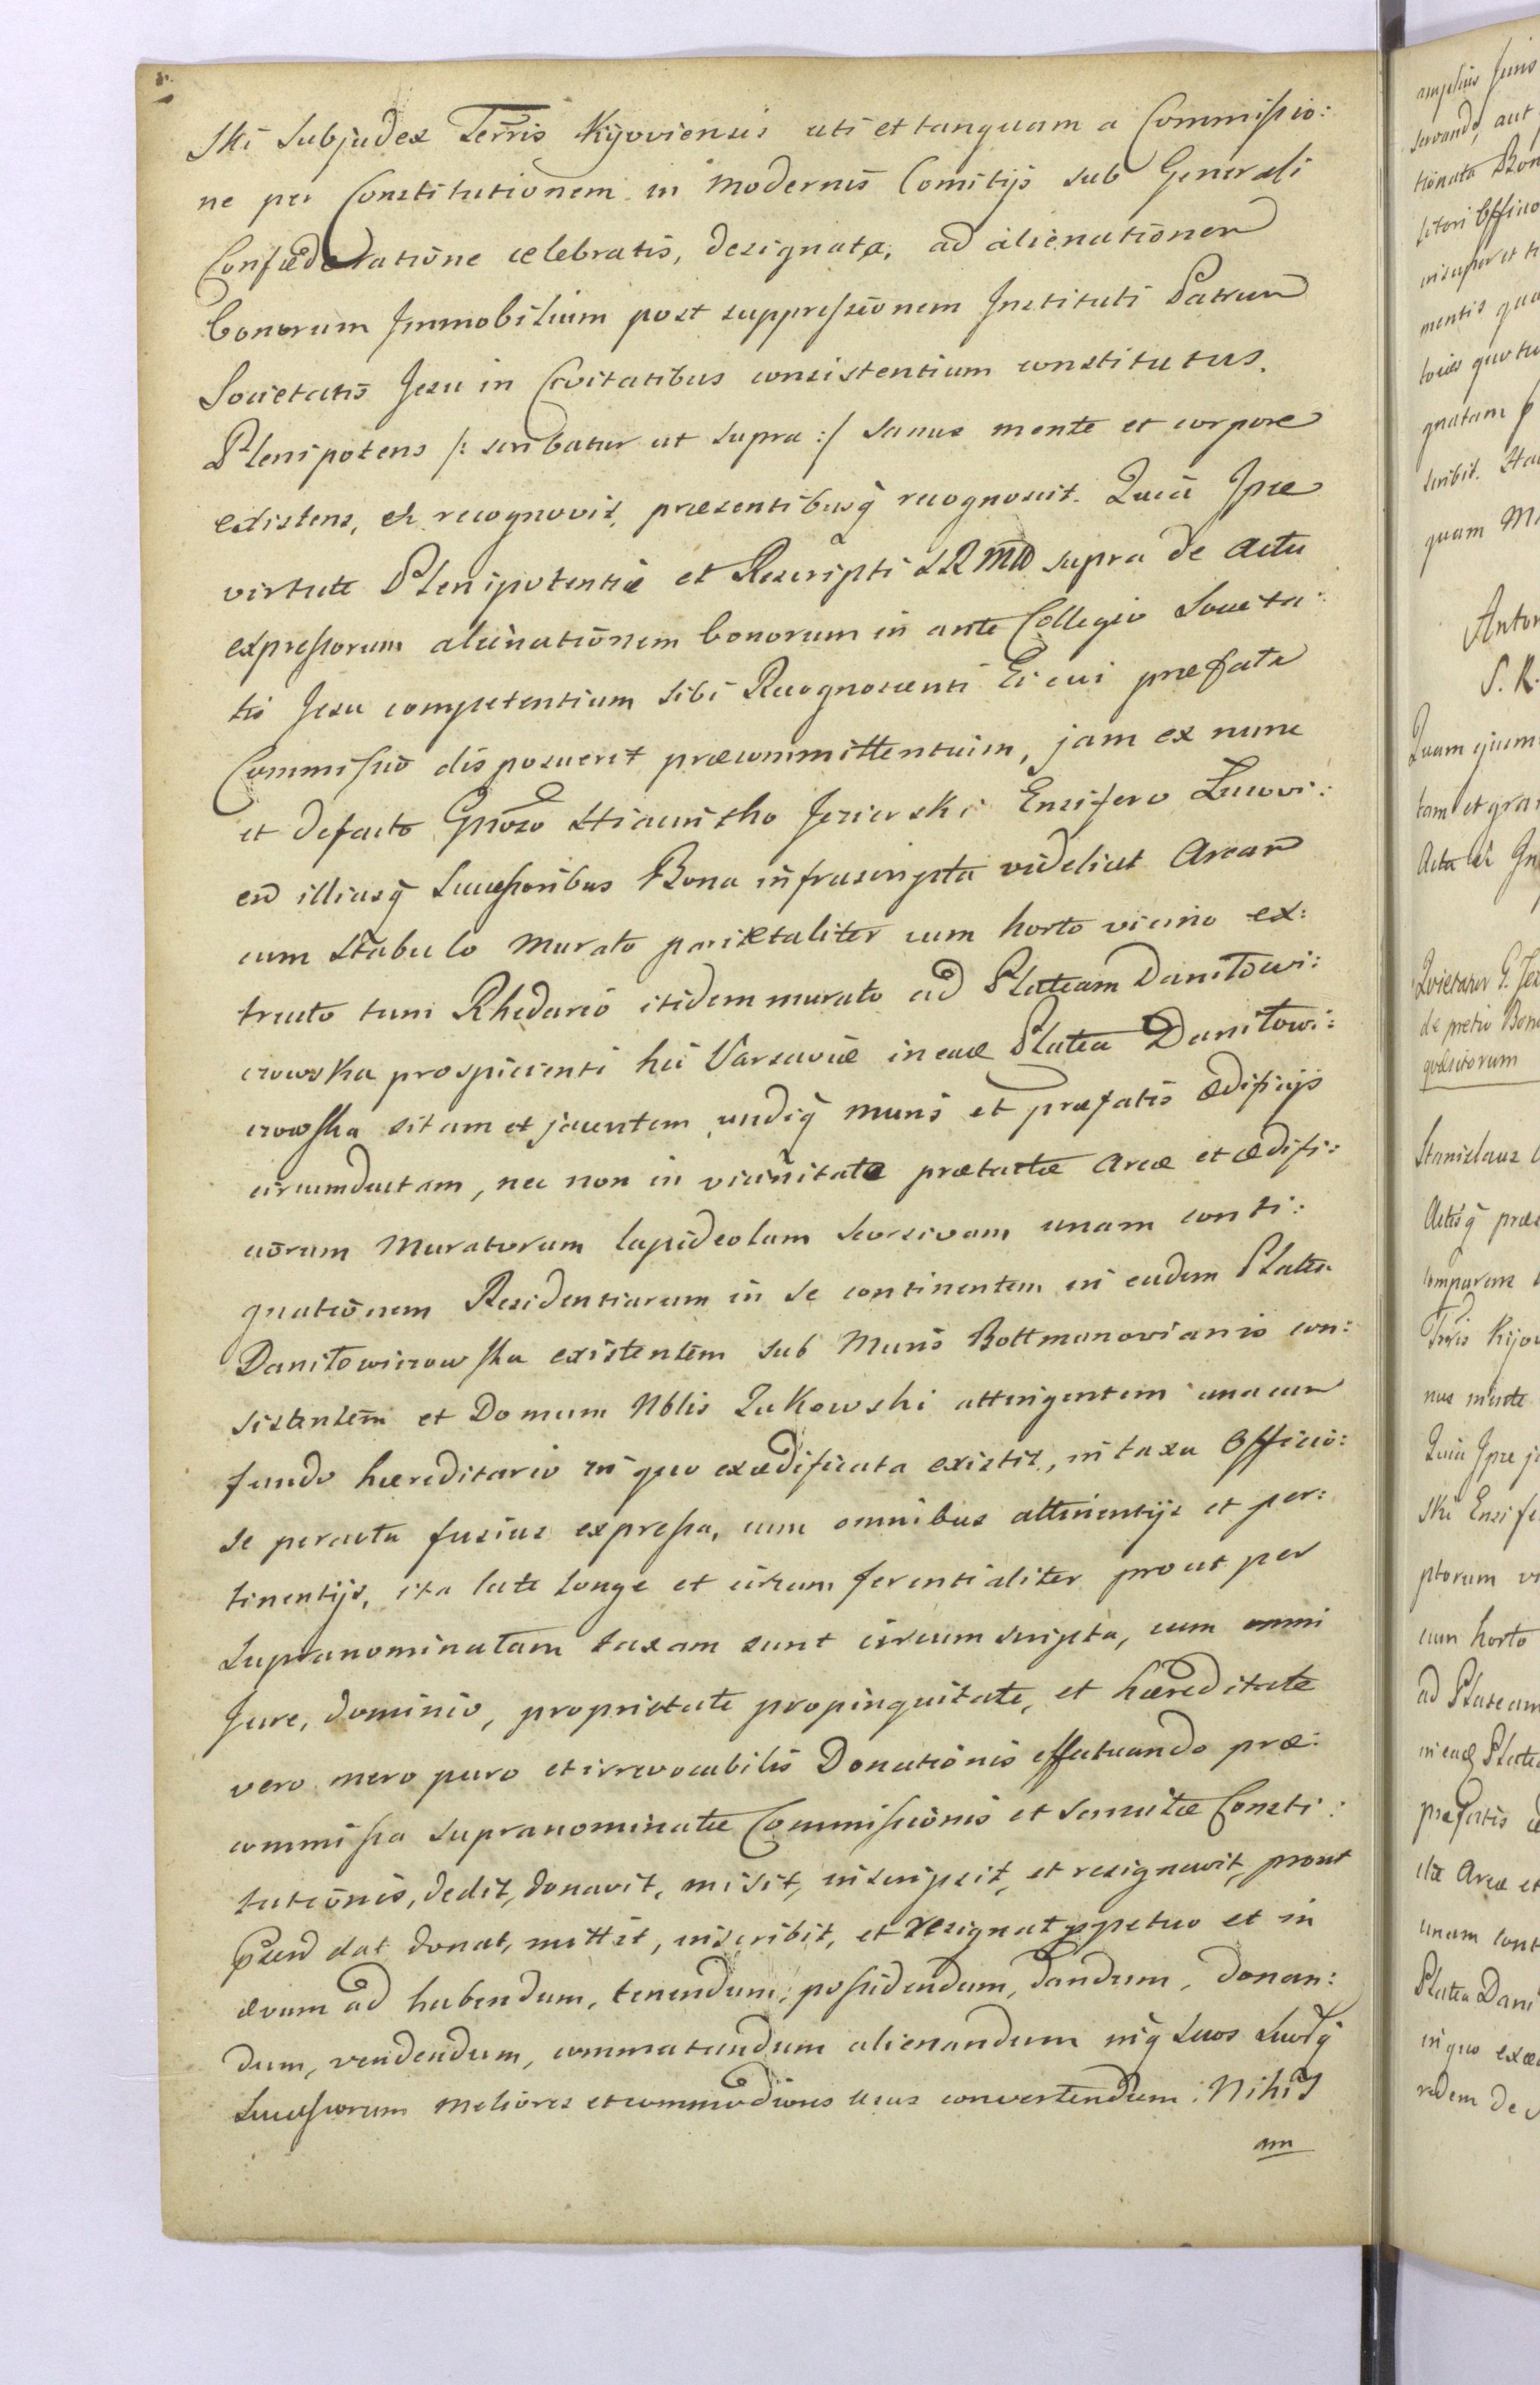 ski Subjudex Terris Kijoviensis uti et tanquam a Commissio:
ne per Constitutionem in modernis Comitijs sub Generali
Confæderatione celebratis, designata, ad alienationem
bonorum Immobilium post suppressionem Instituti Patrum
Societatis Jesu in Civitatibus consistentium constitutus.
Plenipotens /: scribatur ut supra :/ sanus mente et corpore
existens, et recognovit, præsentibusq̃ recognoscit. Quia Ipse
virtute Plenipotentiæ et Rescripti SRMtis supra de Actu
expressorum alienationem bonorum in ante Collegio Societa:
tis Jesu competentium sibi Recognoscenti Ei cui præfata
Commissio disposuerit præcommittentium, jam ex nunc
et defacto Gñoso Hiacintho Jezierski Ensifero Lucovi:
en illiusq̃ Successoribus Bona infrascripta videlicet Aream
cum stabulo murato parietaliter cum horto vicino ex:
tructo tum Rhedario itidem murato ad Plateam Daniłowi:
czowska prospicienti hic Varsaviæ in eadẽ Platea Daniłowi:
czowska sitam et jacentem undiq̃ muris et præfatis ædificijs
circumductam, nec non in vicinitate prætactæ Areæ et ædifi:
ciorum muratorum lapideolam seorsivam unam conti:
gnationem Residentiarum in se continentem in eadem Platea
Daniłowiczowska existentem sub Muris Bottmanovianis con:
sistentem et Domum Nblis Zukowski attingentem una cum
fundo hæreditario in quo exædificata existit, in taxa Officio:
se peracta fusius expressa, cum omnibus attinentijs et per:
tinentijs, ita late longe et circumferentialiter prout per
supranominatam taxam sunt circumscripta, cum omni
Jure, dominio, proprietate propinquitate, et hæreditate
vero mero puro et irrevocabilis Donationis effectuando præ:
commissa supranominatæ Commissionis et sancitæ Consti:
tutionis, dedit, donavit, misit, inscripsit, et resignavit, prout
dat donat, mittit, inscribit, et resignat ppetuo et in
ævum ad habendum, tenendum, possidendum, dandum, donan:
dum, vendendum, commutandum alienandum inq̃ suos suorq̃
Successorum meliores et commodiores usus convertendum. Nihil
am
amplius Juris
servando, aut
tionata Bon
sitori Officio
insuper et
mentis qua
toies quotu
gnatam p
scribit.
quam M
Anton
S. R.
Quam quum
tam et gra
Acta
Quietatur G. Jez
de pretio Bono
quæsitorum
Stanislaus
Actisq̃ præs
comparens
Tñris Kijov
nus mente
Quia Ipse j
ski Ensife
ptorum vi
cum horto
ad Plateam
in eadẽ Platea
præfatis æ
ctæ Areæ et
unam cont
Platea Dani
in quo exæd